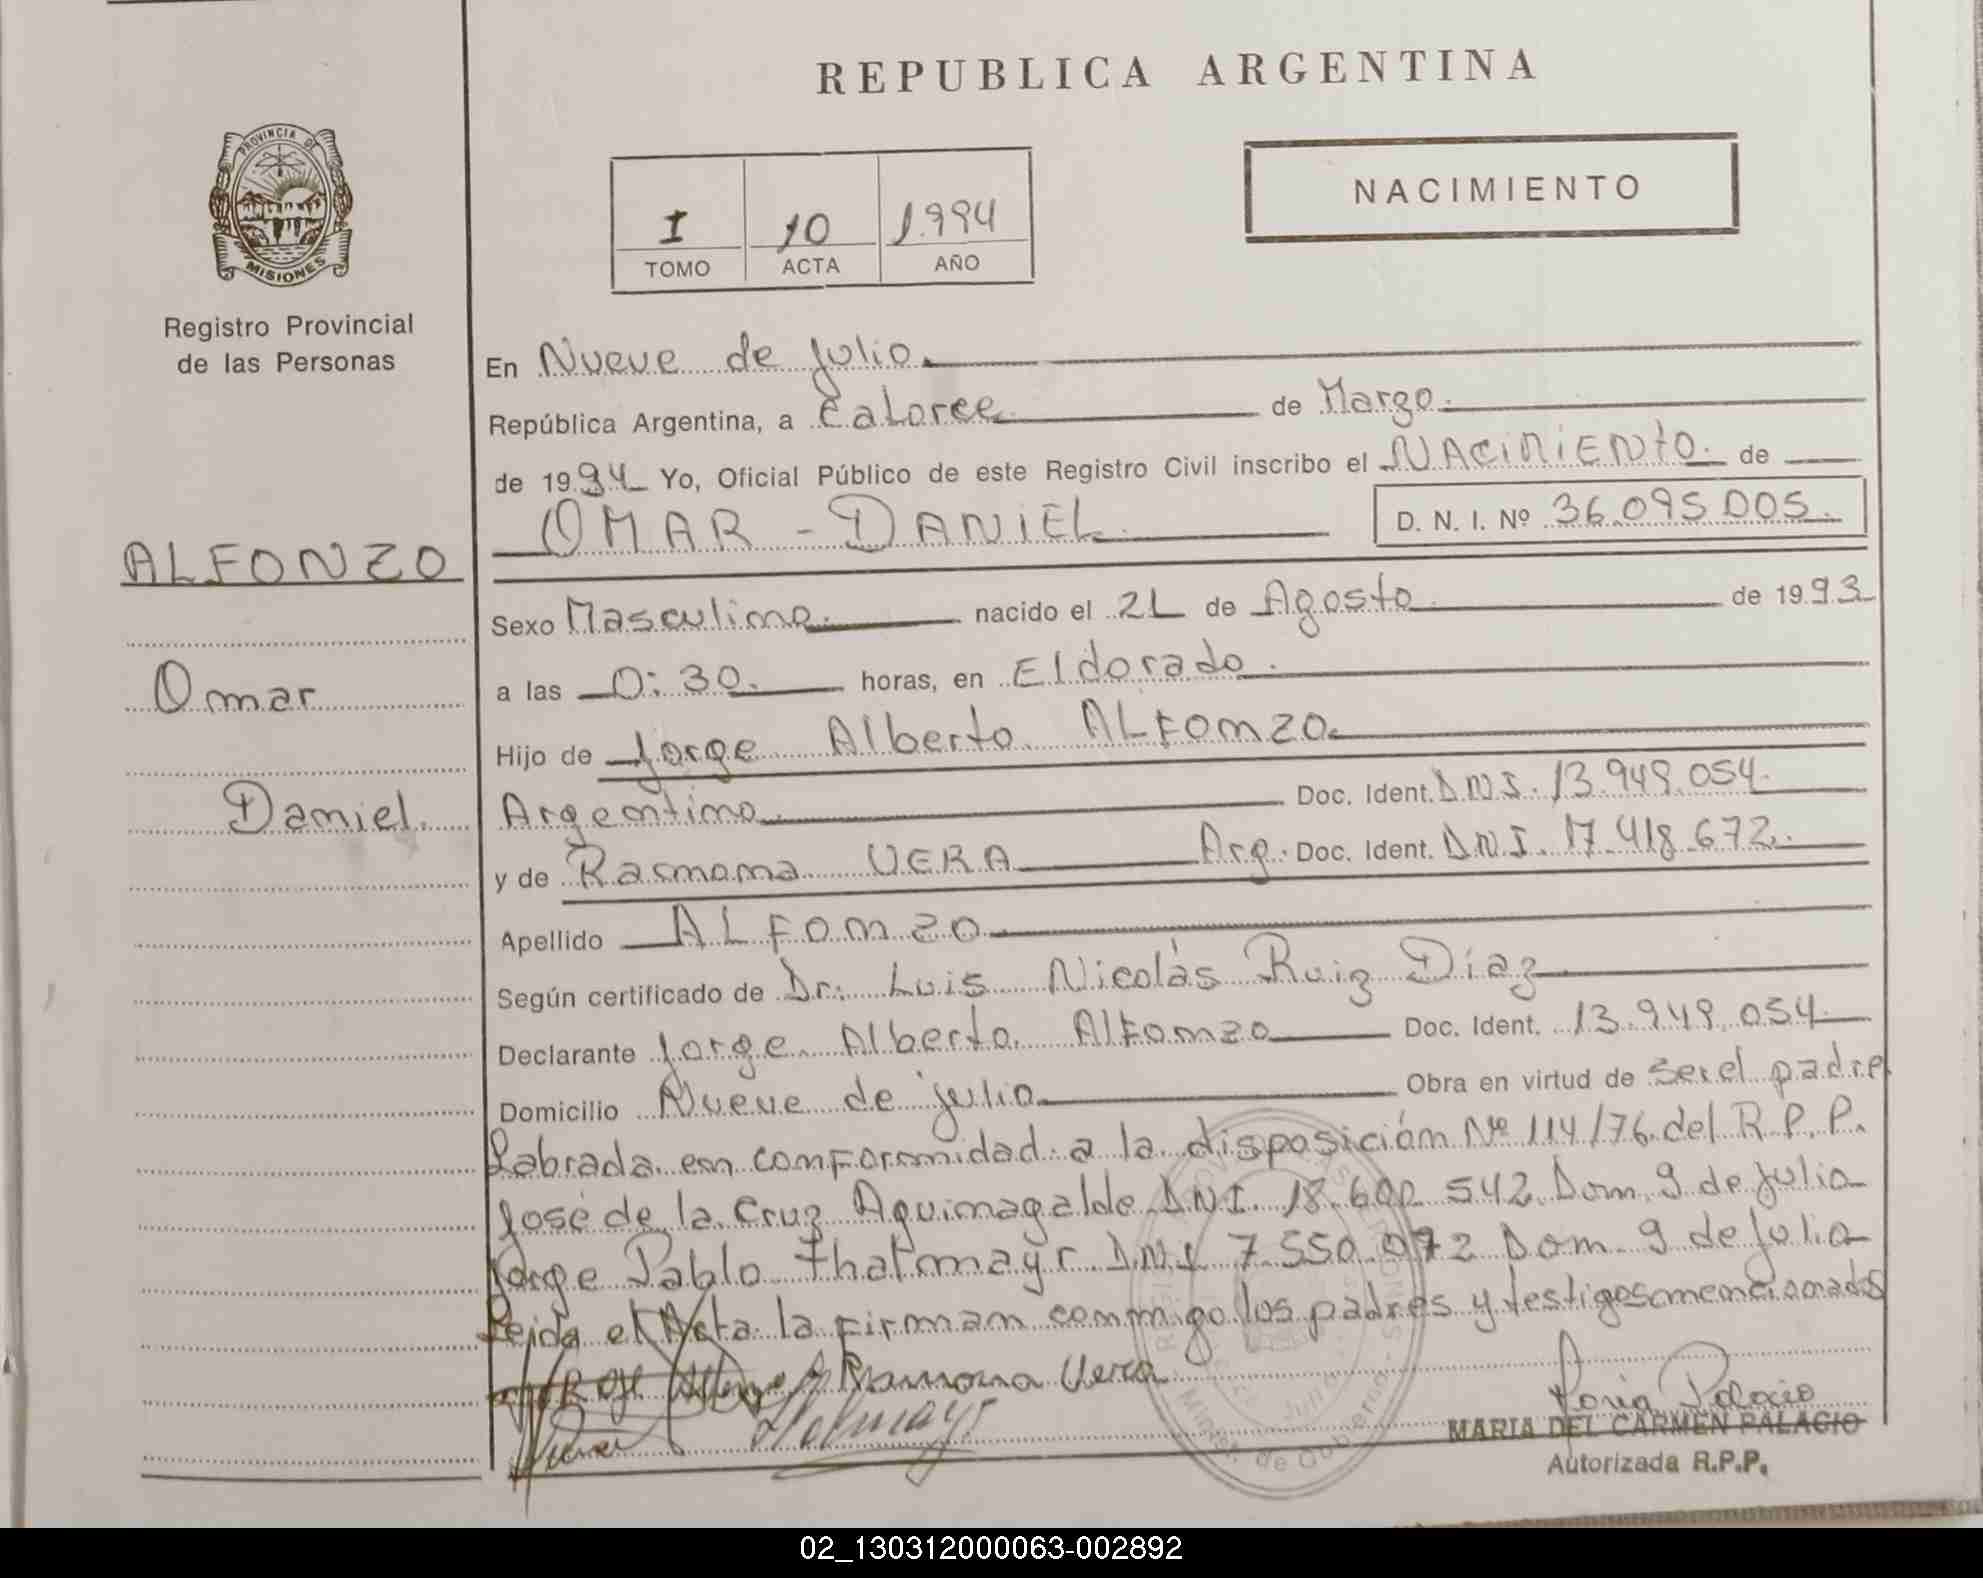 REPUBLICA ARGENTINA
PROVINCIA DE
MISIONES
Registro Provincial
de las Personas
I 10 1.994
TOMO ACTA AÑO
NACIMIENTO
En Nueve de Julio.
República Argentina, a Catorce de Marzo.
de 1994 Yo, Oficial Público de este Registro Civil inscribo el NACIMIENTO. de
OMAR - DANIEL. D. N. I. Nº 36.095.005.
ALFONZO
Omar
Daniel.
Sexo Masculino. nacido el 21 de Agosto de 1993
a las 0:30. horas, en Eldorado.
Hijo de Jorge Alberto ALFONZO.
Argentino. Doc. Ident. D.N.I. 13.949.054.
y de Ramona VERA Arg. Doc. Ident. D.N.I. 17.418.672.
Apellido ALFONZO
Según certificado de Dr. Luis Nicolás Ruiz Díaz
Declarante Jorge Alberto Alfonzo Doc. Ident. 13.949.054
Domicilio Nueve de julio Obra en virtud de ser el padre
Labrada en conformidad a la disposición Nº 114/76 del R.P.P.
José de la Cruz Aguimagalde D.N.I. 18.600.542 Dom. 9 de Julio
Jorge Pablo Thalmayr D.N.I. 7.550.072 Dom. 9 de Julio
Leida el Acta la firman conmigo los padres y testigos mencionados
Ramona Vera
Maria Palacio
MARIA DEL CARMEN PALACIO
Autorizada R.P.P.
02_130312000063-002892